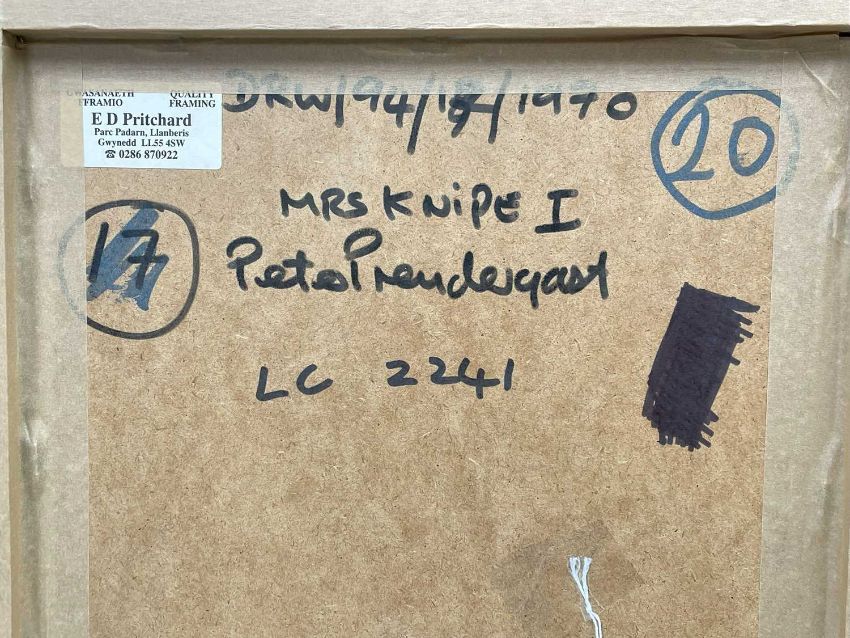 GWASANAETH QUALITY
FFRAMIO FRAMING
E D Pritchard
Parc Padarn, Llanberis
Gwynedd LL55 4SW
☎ 0286 870922
DRW/94/ /1970
20
MRS KNIPE I
17
Peter Prendergast
LC 2241